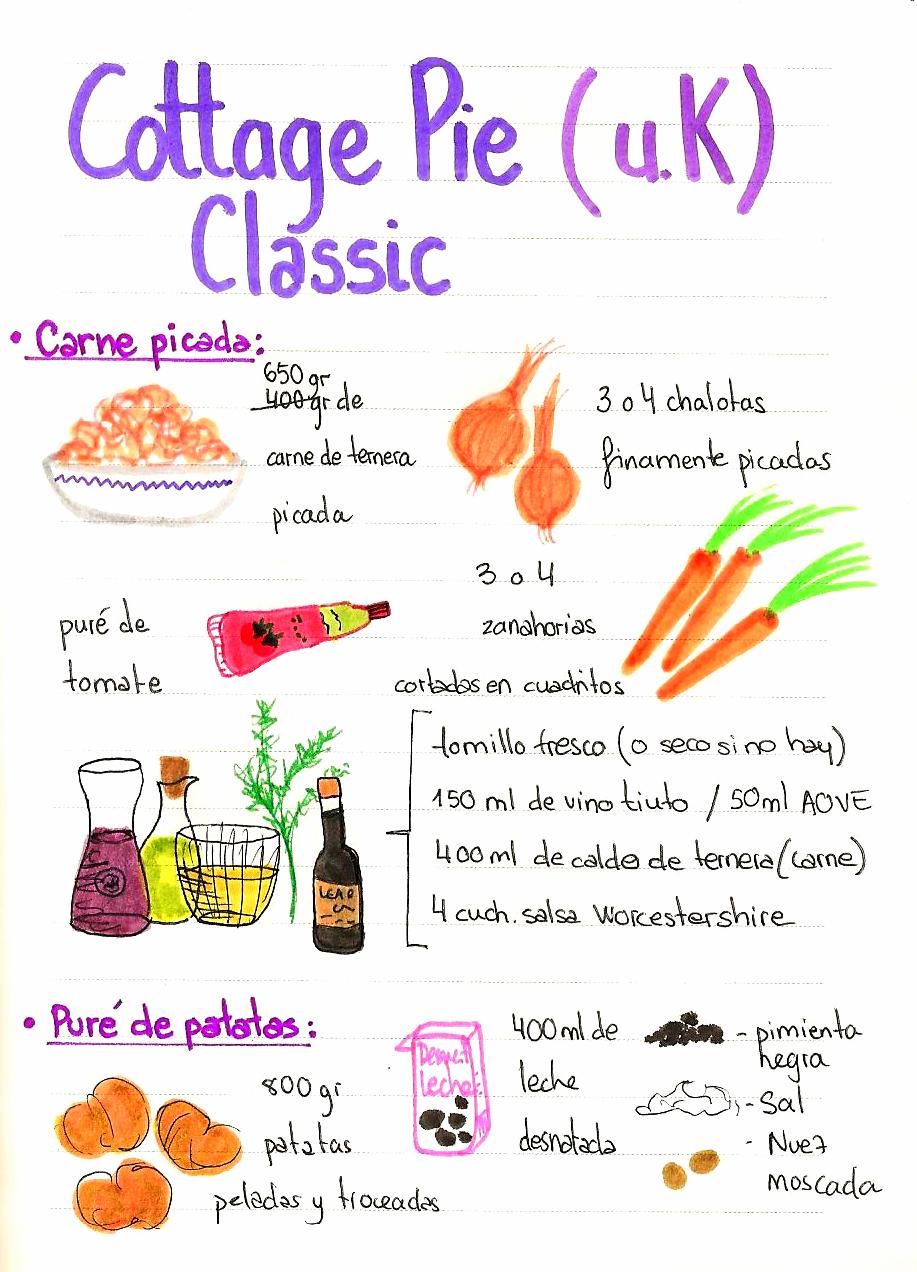 Cottage Pie (u.K)
Classic
• Carne picada:
650 gr
400 gr de
carne de ternera
picada
3 o 4 chalotas
finamente picadas
3 o 4
zanahorias
cortadas en cuadritos
puré de
tomate
tomillo fresco (o seco si no hay)
150 ml de vino tiuto / 50ml AOVE
400ml de caldo de ternera (carne)
4 cuch. salsa Worcestershire
• Puré de patatas:
800 gr
patatas
peladas y troceadas
leche
400ml de
leche
desnatada
- pimienta
negra
- Sal
- Nuez
moscada